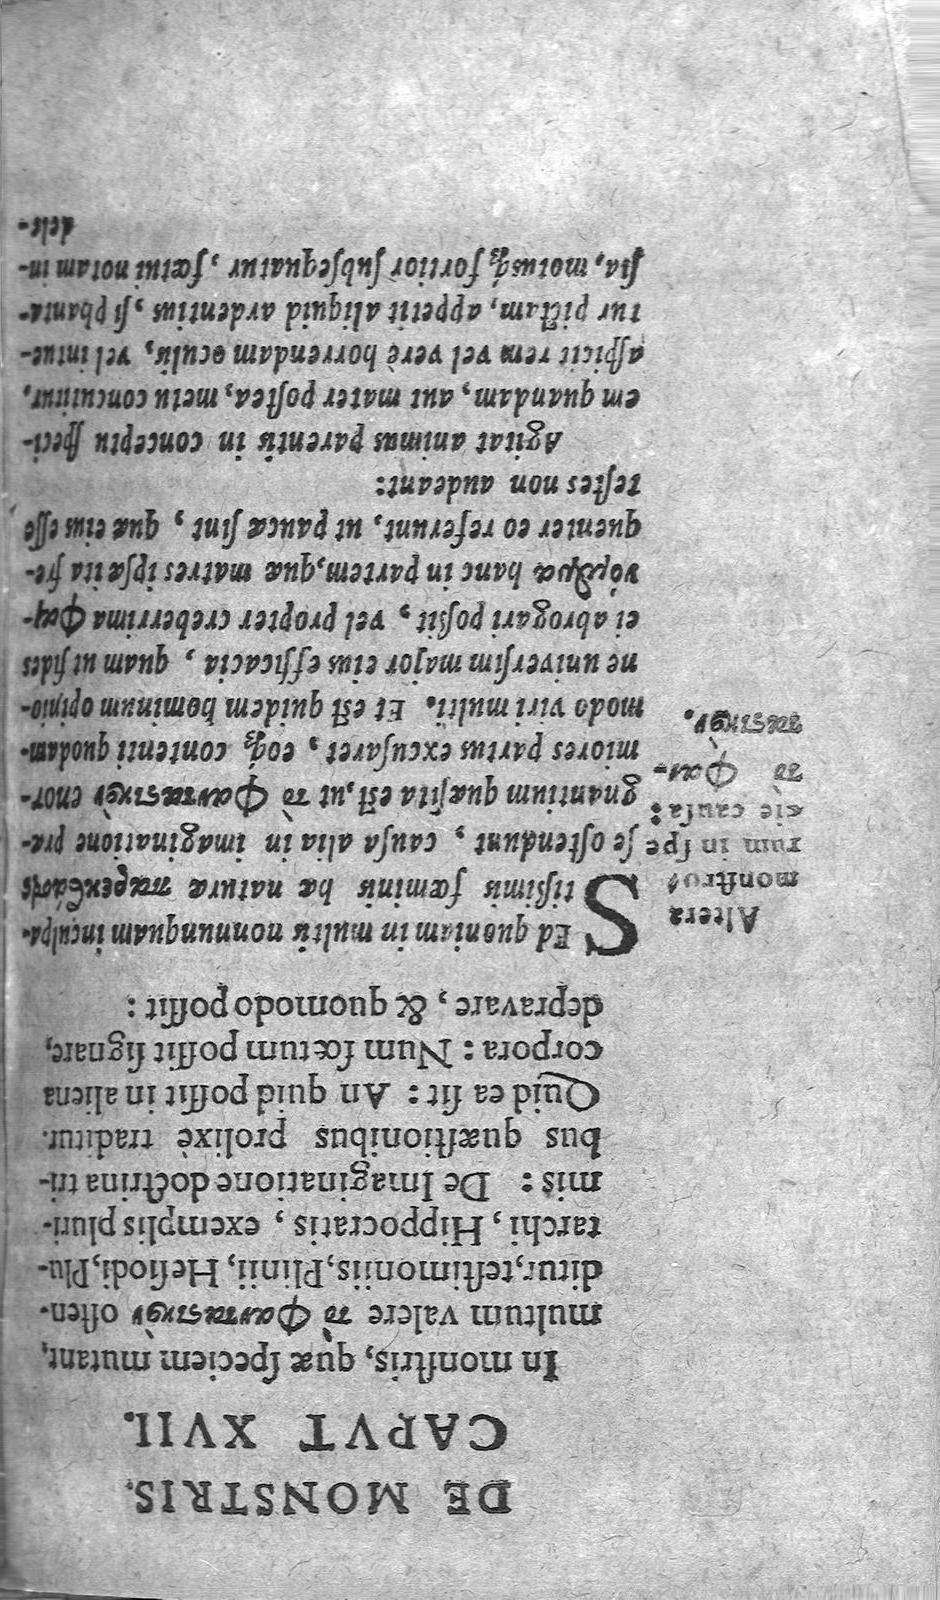 DE MONSTRIS.
CAPVT XVII.
In monſtris, quæ ſpeciem mutant,
multum valere τὸ Φανταστικὸν oſten-
ditur, teſtimoniis, Plinii, Heſiodi, Plu-
tarchi, Hippocratis, exemplis pluri-
mis: De Imaginatione doctrina tri-
bus quæſtionibus prolixè traditur.
Quid ea ſit: An quid poſſit in aliena
corpora: Num fœtum poſſit ſignare,
depravare, & quomodo poſſit:
SEd quoniam in multis nonnunquam inculpa-
tiſsimis fœminis hæ naturæ
ſe oſtendunt, cauſa alia in imaginatione præ-
gnantium quæſita eſt, ut τὸ Φανταστικὸν enor-
miores partus excuſaret, eoq́; contenti quodam-
modo viri multi. Et eſt quidem hominum opinio-
ne univerſim major eius efficacia, quam ut fides
ei abrogari poſsit, vel propter creberrima Φαι-
νόμενα hanc in partem, quæ matres ipſæ ita fre-
quenter eo referunt, ut pauca ſint, quæ eius eſſe
teſtes non audeant:
Agitat animus parentis in conceptu ſpeci-
em quandam, aut mater poſtea, metu concutitur,
aſpicit rem vel verè horrendam oculis, vel intue-
tur pictam, appetit aliquid ardentius, ſi phanta-
ſia, motusq́; fortior ſubſequatur, fœtui notam in-
dele-
Altera
monſtro-
rum in ſpe
cie cauſa:
τὸ Φαν-
ταστικὸν.